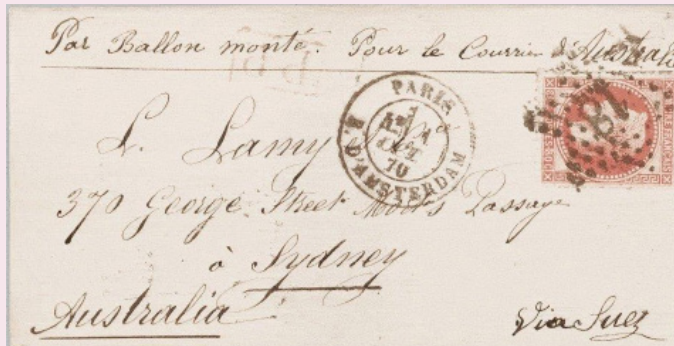 Par Ballon monté. Pour le Courrier d'Australie
PARIS
1
70
R. D'AMSTERDAM
FRANÇAIS
L. Lamy
370 George Street Mort's Passage
à Sydney
Australia
Via Suez